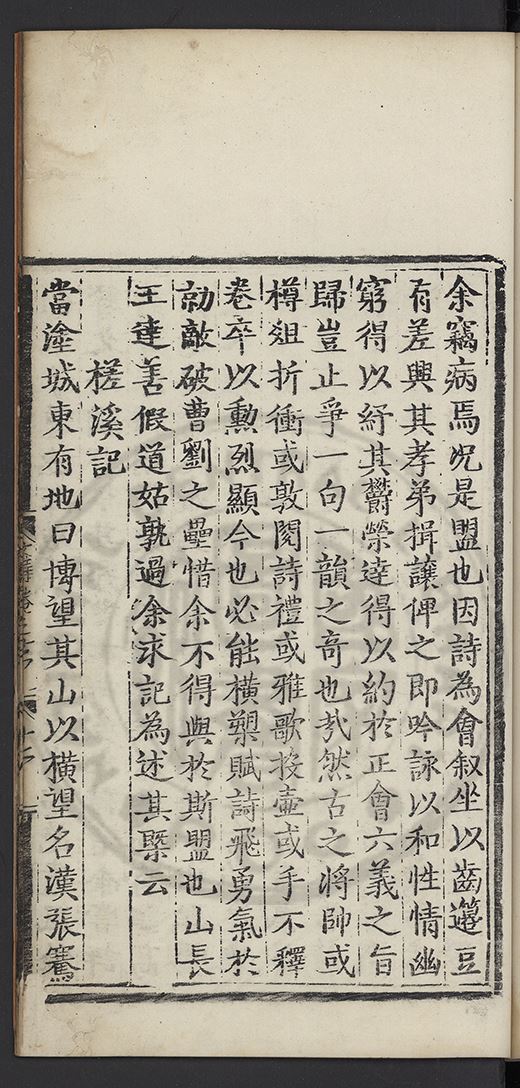 余竊病焉况是盟也因詩為會叙坐以齒籩豆
有差興其孝弟揖讓俾之即吟詠以和性情幽
窮得以紓其欝榮達得以約於正會六義之旨
歸豈止爭一句一韻之竒也㢤然古之將帥或
樽俎折衝或敦閱詩禮或雅歌投壷或手不釋
卷卒以勲烈顯今也必能横槊賦詩飛勇氣於
勍敵破曹劉之壘惜余不得與於斯盟也山長
王達善假道姑孰過余求記為述其槩云
槎溪記
當塗城東有地曰博望其山以横望名漢張騫